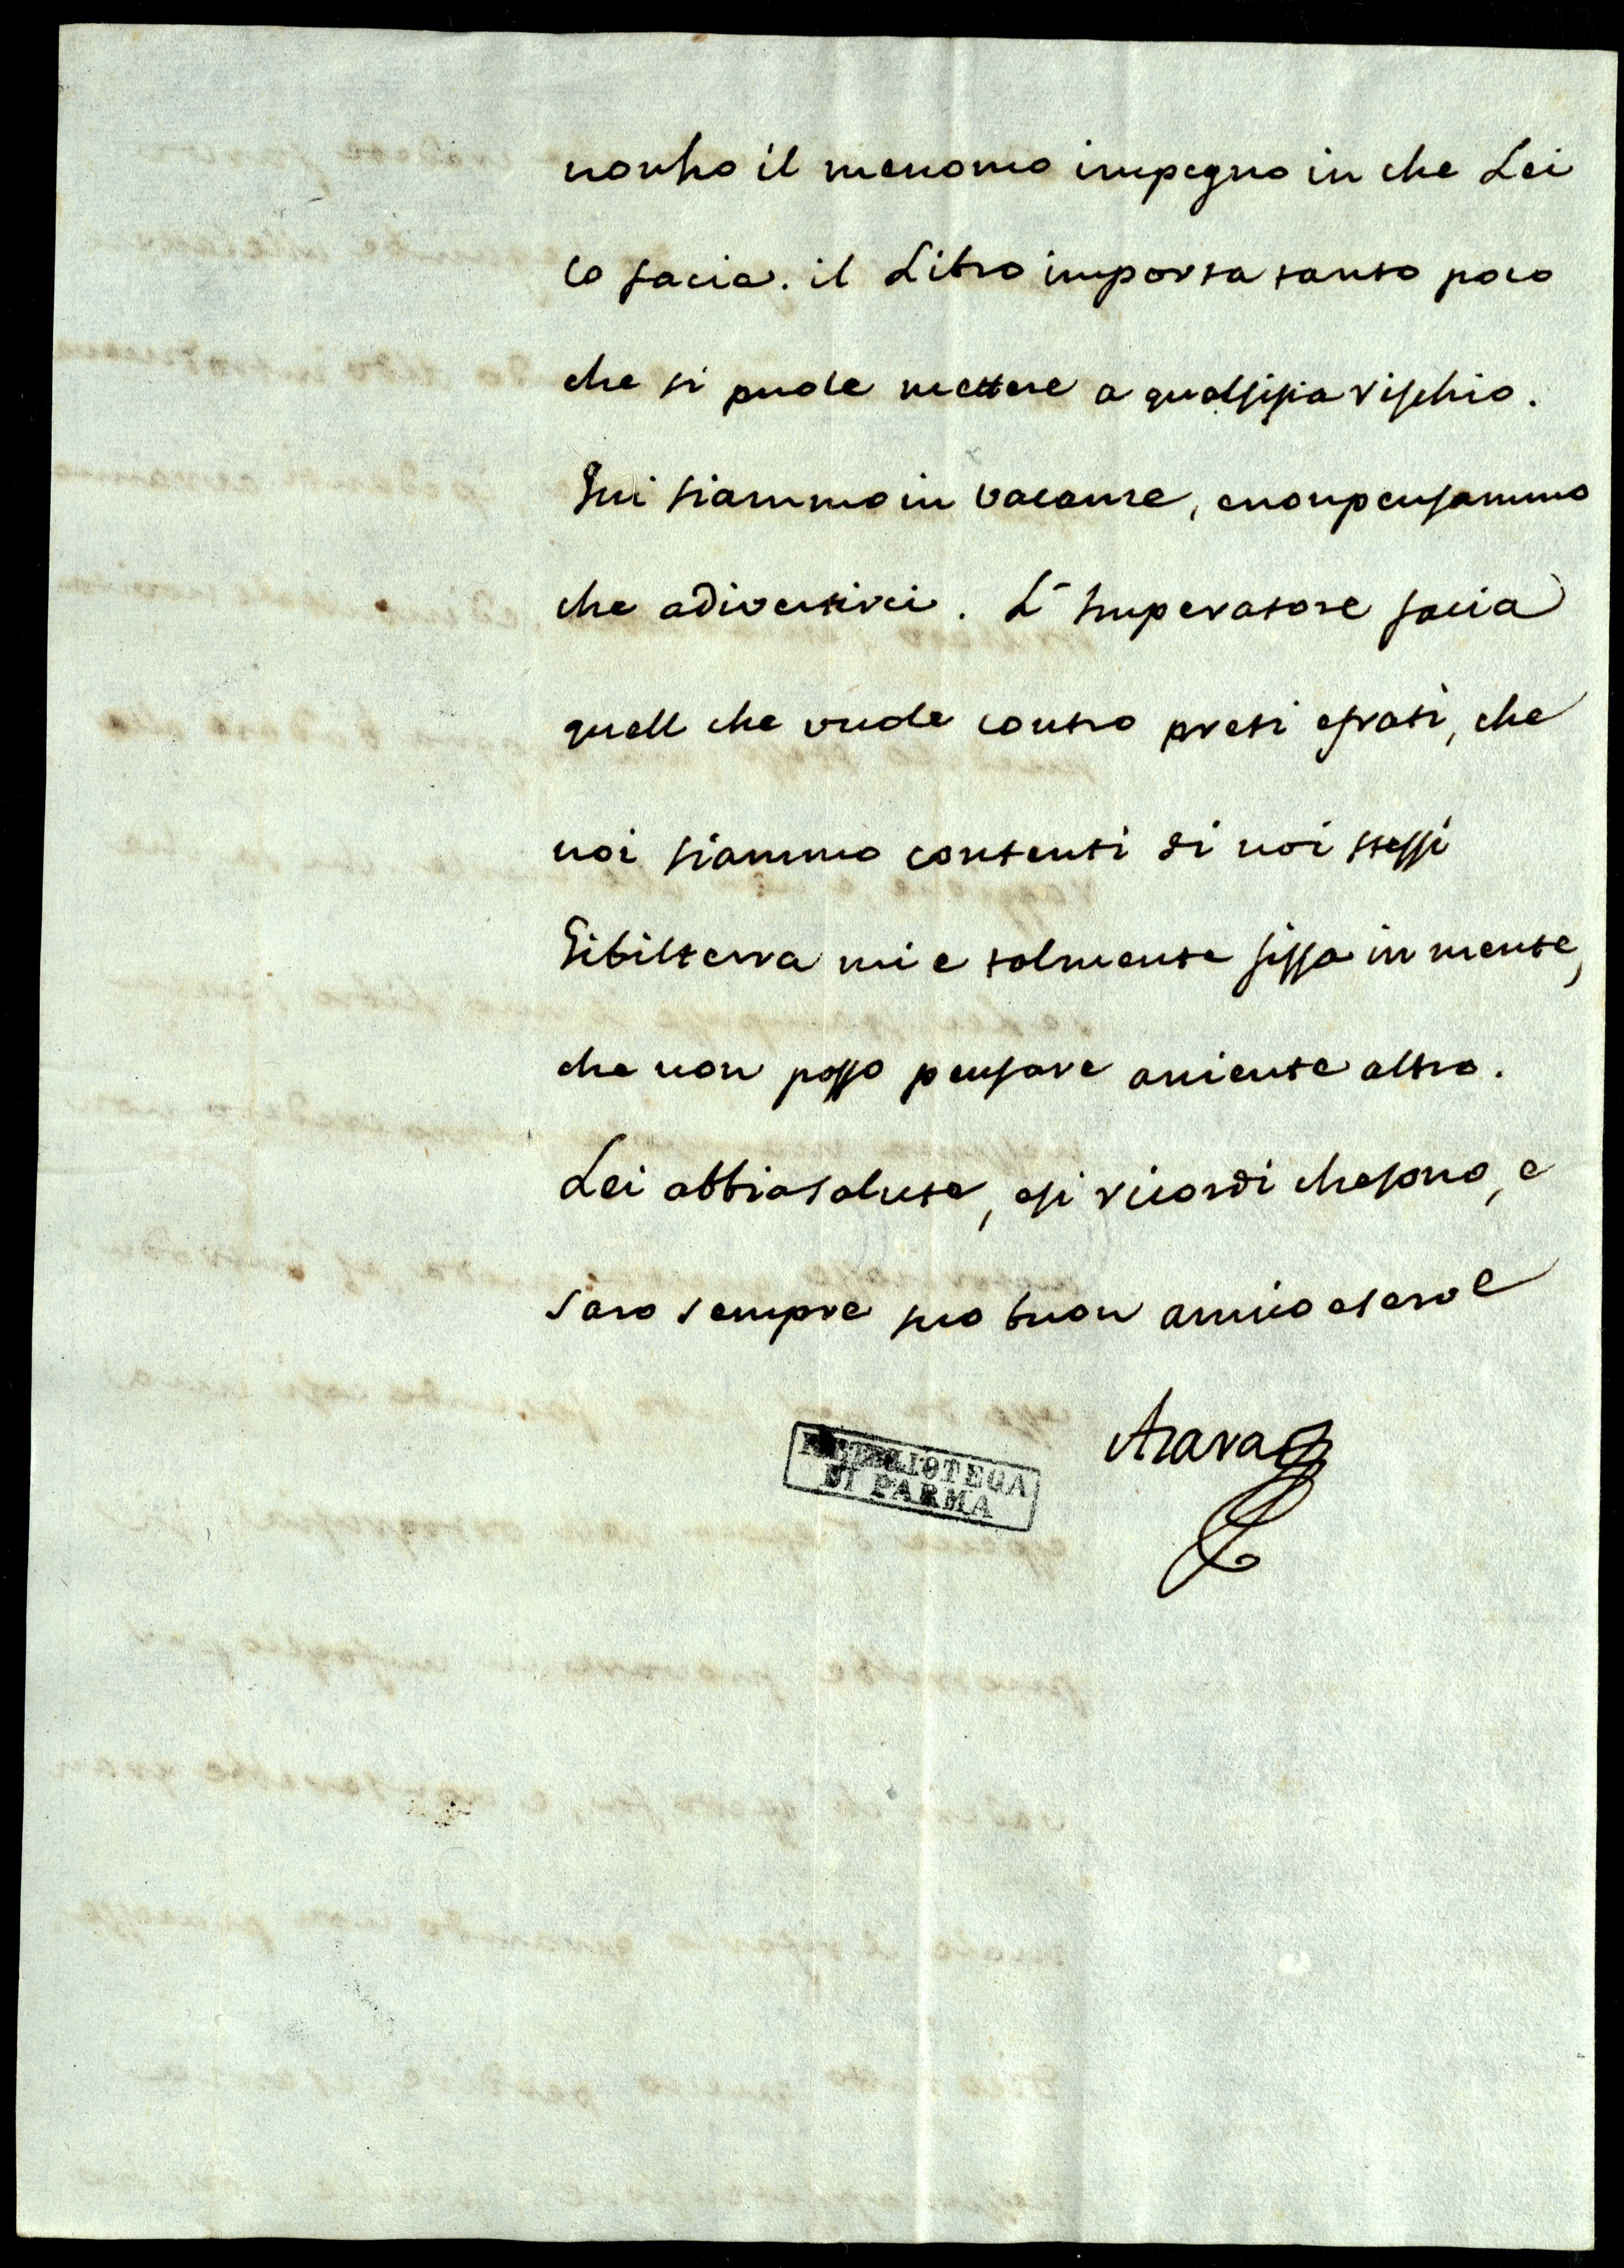 nonho il menomo impegno in che Lei
lo facia. il Libro importa tanto poco
che si puole mettere a qualsisia rischio.
Qui siammo in vacanze, enonpensammo
che adivertirci. L'Imperatore facia
quell che vuole contro preti efrati, che
noi siammo contenti di noi stessi
Gibilterra mi e talmente fissa in mente,
che non posso pensare aniente altro.
Lei abbia salute, esi ricordi chesono, e
saro sempre suo buon amico eserve
Azara
BIBLIOTECA
DI PARMA